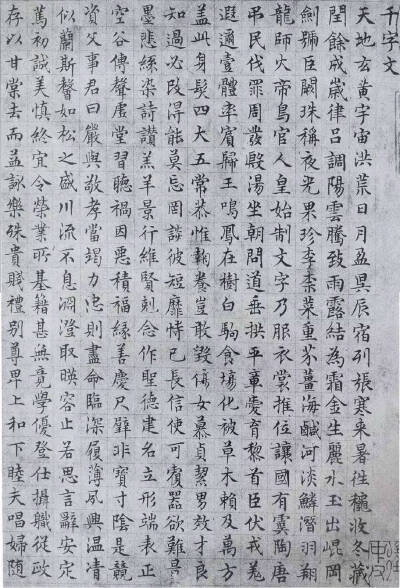 千字文
天地玄黃宇宙洪荒日月盈昃辰宿列張寒來暑往穐收冬藏
閏餘成歲律呂調陽雲騰致雨露結為霜金生麗水玉出崐岡
劍號巨闕珠稱夜光果珍李柰菜重芥薑海鹹河淡鱗潛羽翔
龍師火帝鳥官人皇始制文字乃服衣裳推位讓國有虞陶唐
弔民伐罪周發殷湯坐朝問道垂拱平章愛育黎首臣伏戎羌
遐邇壹體率賓歸王鳴鳳在樹白駒食場化被草木賴及萬方
蓋此身髮四大五常恭惟鞠養豈敢毀傷女慕貞絜男效才良
知過必改得能莫忘罔談彼短靡恃己長信使可覆器欲難量
墨悲絲染詩讚羔羊景行維賢剋念作聖德建名立形端表正
空谷傳聲虛堂習聽禍因惡積福緣善慶尺璧非寶寸陰是競
資父事君曰嚴與敬孝當竭力忠則盡命臨深履薄夙興溫凊
似蘭斯馨如松之盛川流不息淵澄取暎容止若思言辭安定
篤初誠美慎終宜令榮業所基籍甚無竟學優登仕攝職從政
存以甘棠去而益詠樂殊貴賤禮別尊卑上和下睦夫唱婦隨